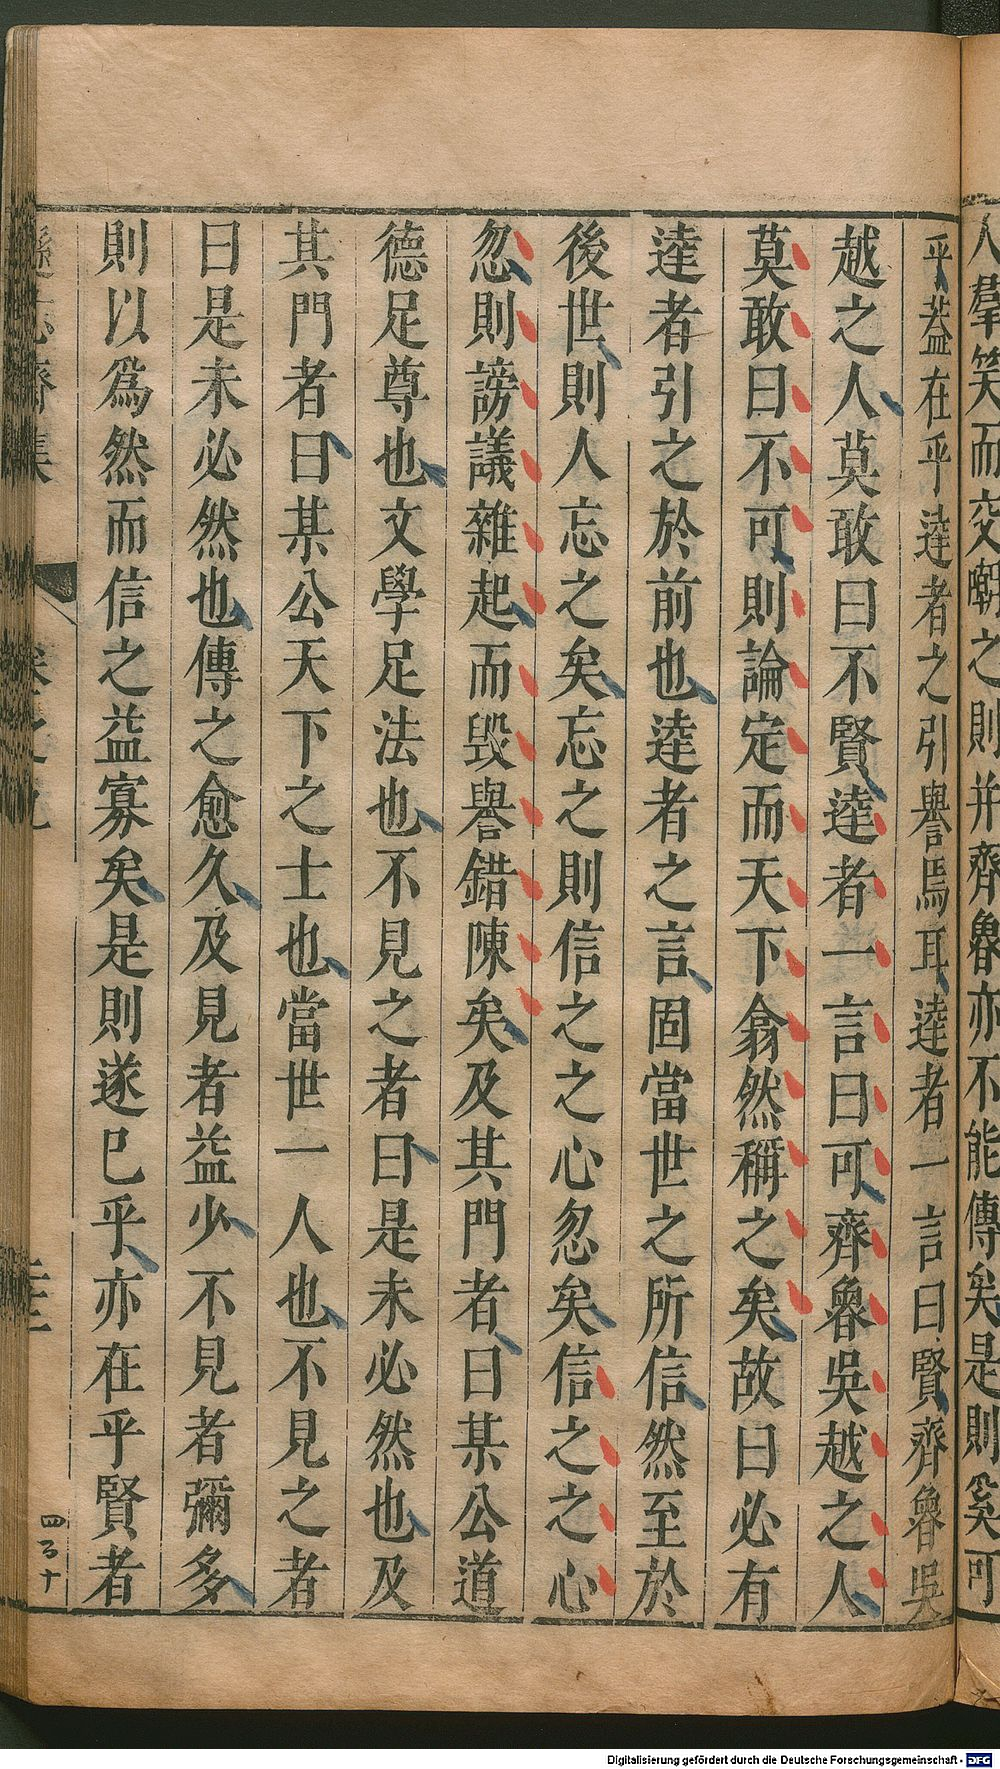 人羣笑而交嘲之則并齊魯亦不能傳矣是則奚可
乎葢在乎達者之引譽焉耳達者一言曰賢齊魯吳
越之人莫敢曰不賢達者一言曰可齊魯吳越之人
莫敢曰不可則論定而天下翕然稱之矣故曰必有
達者引之於前也達者之言固當世之所信然至於
後世則人忘之矣忘之則信之之心忽矣信之之心
忽則謗議雜起而毀譽錯陳矣及其門者曰某公道
德足尊也文學足法也不見之者曰是未必然也及
其門者曰某公天下之士也當世一人也不見之者
曰是未必然也傳之愈久及見者益少不見者彌多
則以爲然而信之益寡矣是則遂已乎亦在乎賢者
遜志齋集
四百十
Digitalisierung gefördert durch die Deutsche Forschungsgemeinschaft - DFG